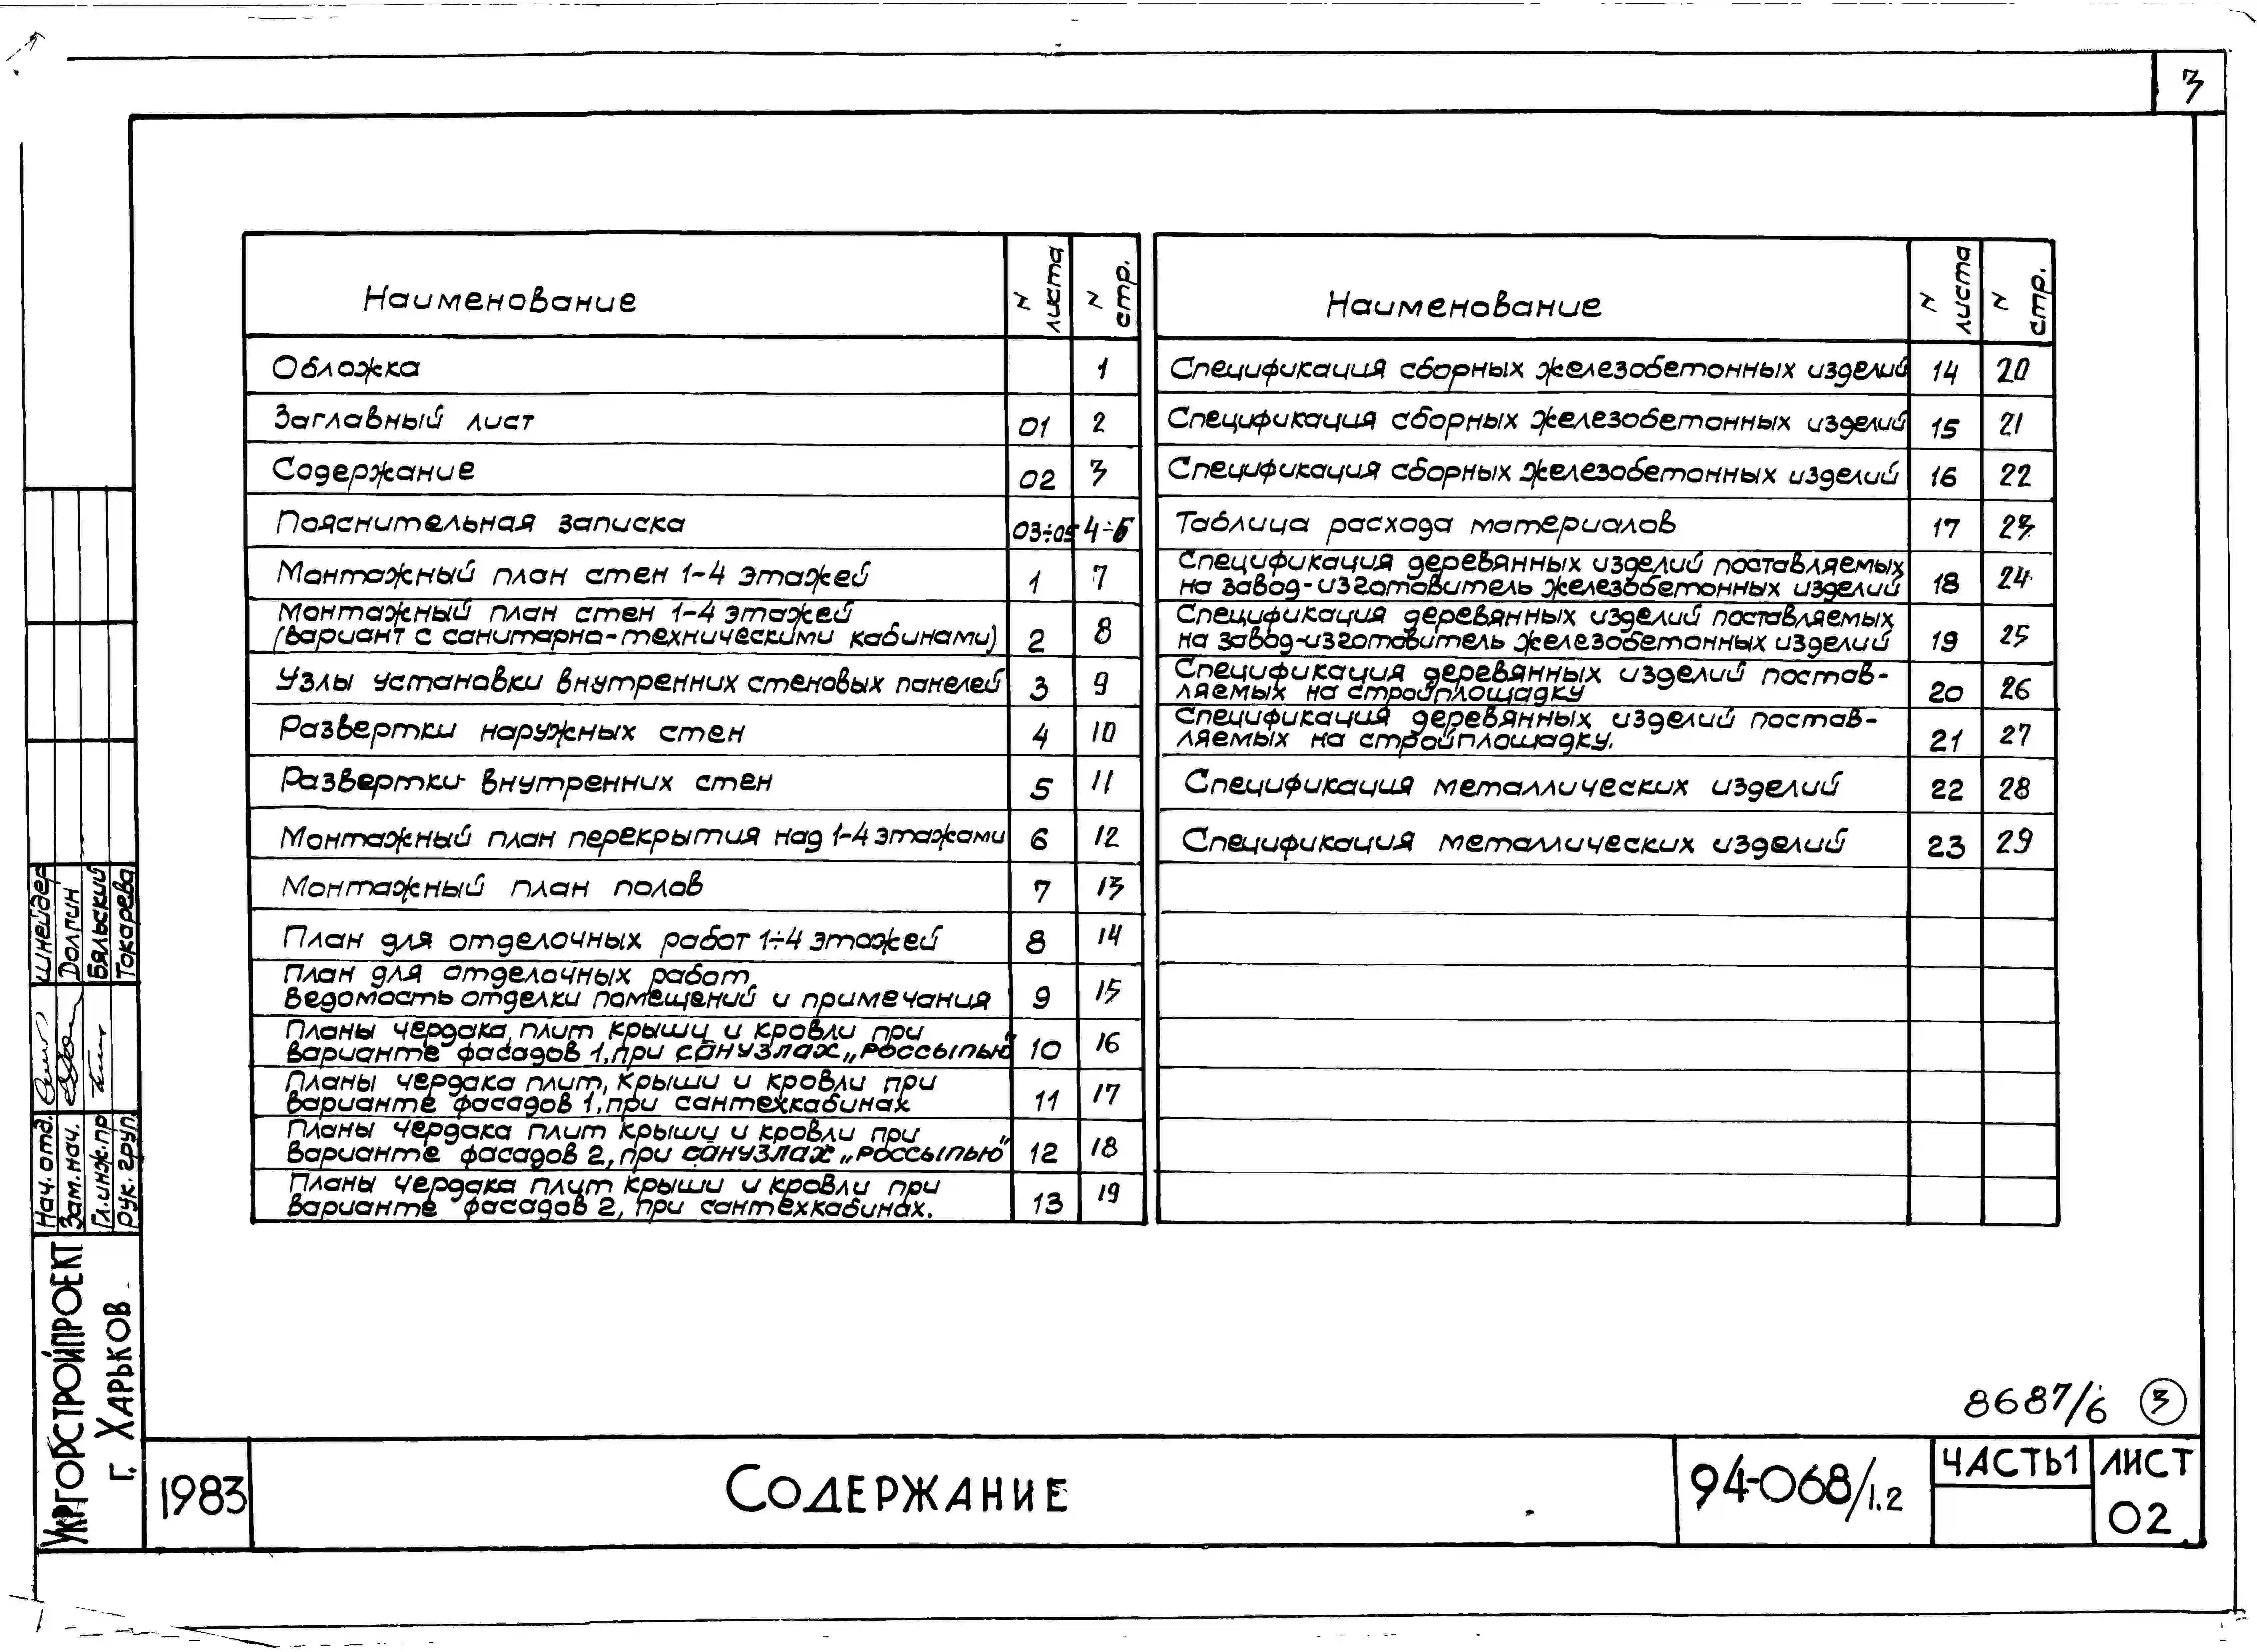 3
Наименование
N листа
N стр.
Обложка 1
Заглавный лист 01 2
Содержание 02 3
Пояснительная записка 03÷05 4÷6
Монтажный план стен 1-4 этажей 1 7
Монтажный план стен 1-4 этажей
(вариант с санитарно-техническими кабинами) 2 8
Узлы установки внутренних стеновых панелей 3 9
Развертки наружных стен 4 10
Развертки внутренних стен 5 11
Монтажный план перекрытия над 1-4 этажами 6 12
Монтажный план полов 7 13
План для отделочных работ 1÷4 этажей 8 14
План для отделочных работ.
Ведомость отделки помещений и примечания 9 15
Планы чердака, плит крыши и кровли при
варианте фасадов 1, при санузлах „россыпью" 10 16
Планы чердака плит, крыши и кровли при
варианте фасадов 1, при сантехкабинах 11 17
Планы чердака плит крыши и кровли при
варианте фасадов 2, при санузлах „россыпью" 12 18
Планы чердака плит крыши и кровли при
варианте фасадов 2, при сантехкабинах. 13 19
Наименование
N листа
N стр.
Спецификация сборных железобетонных изделий 14 20
Спецификация сборных железобетонных изделий 15 21
Спецификация сборных железобетонных изделий 16 22
Таблица расхода материалов 17 23
Спецификация деревянных изделий поставляемых
на завод-изготовитель железобетонных изделий 18 24
Спецификация деревянных изделий поставляемых
на завод-изготовитель железобетонных изделий 19 25
Спецификация деревянных изделий постав-
ляемых на стройплощадку 20 26
Спецификация деревянных изделий постав-
ляемых на стройплощадку. 21 27
Спецификация металлических изделий 22 28
Спецификация металлических изделий 23 29
Нач. отд. Шнейдер
Зам. нач. Долгин
Гл. инж. пр Бяльский
Рук. груп. Токарева
Укргорстройпроект
г. Харьков
8687/6 3
1983
Содержание
94-068/1.2
Часть 1
Лист
02